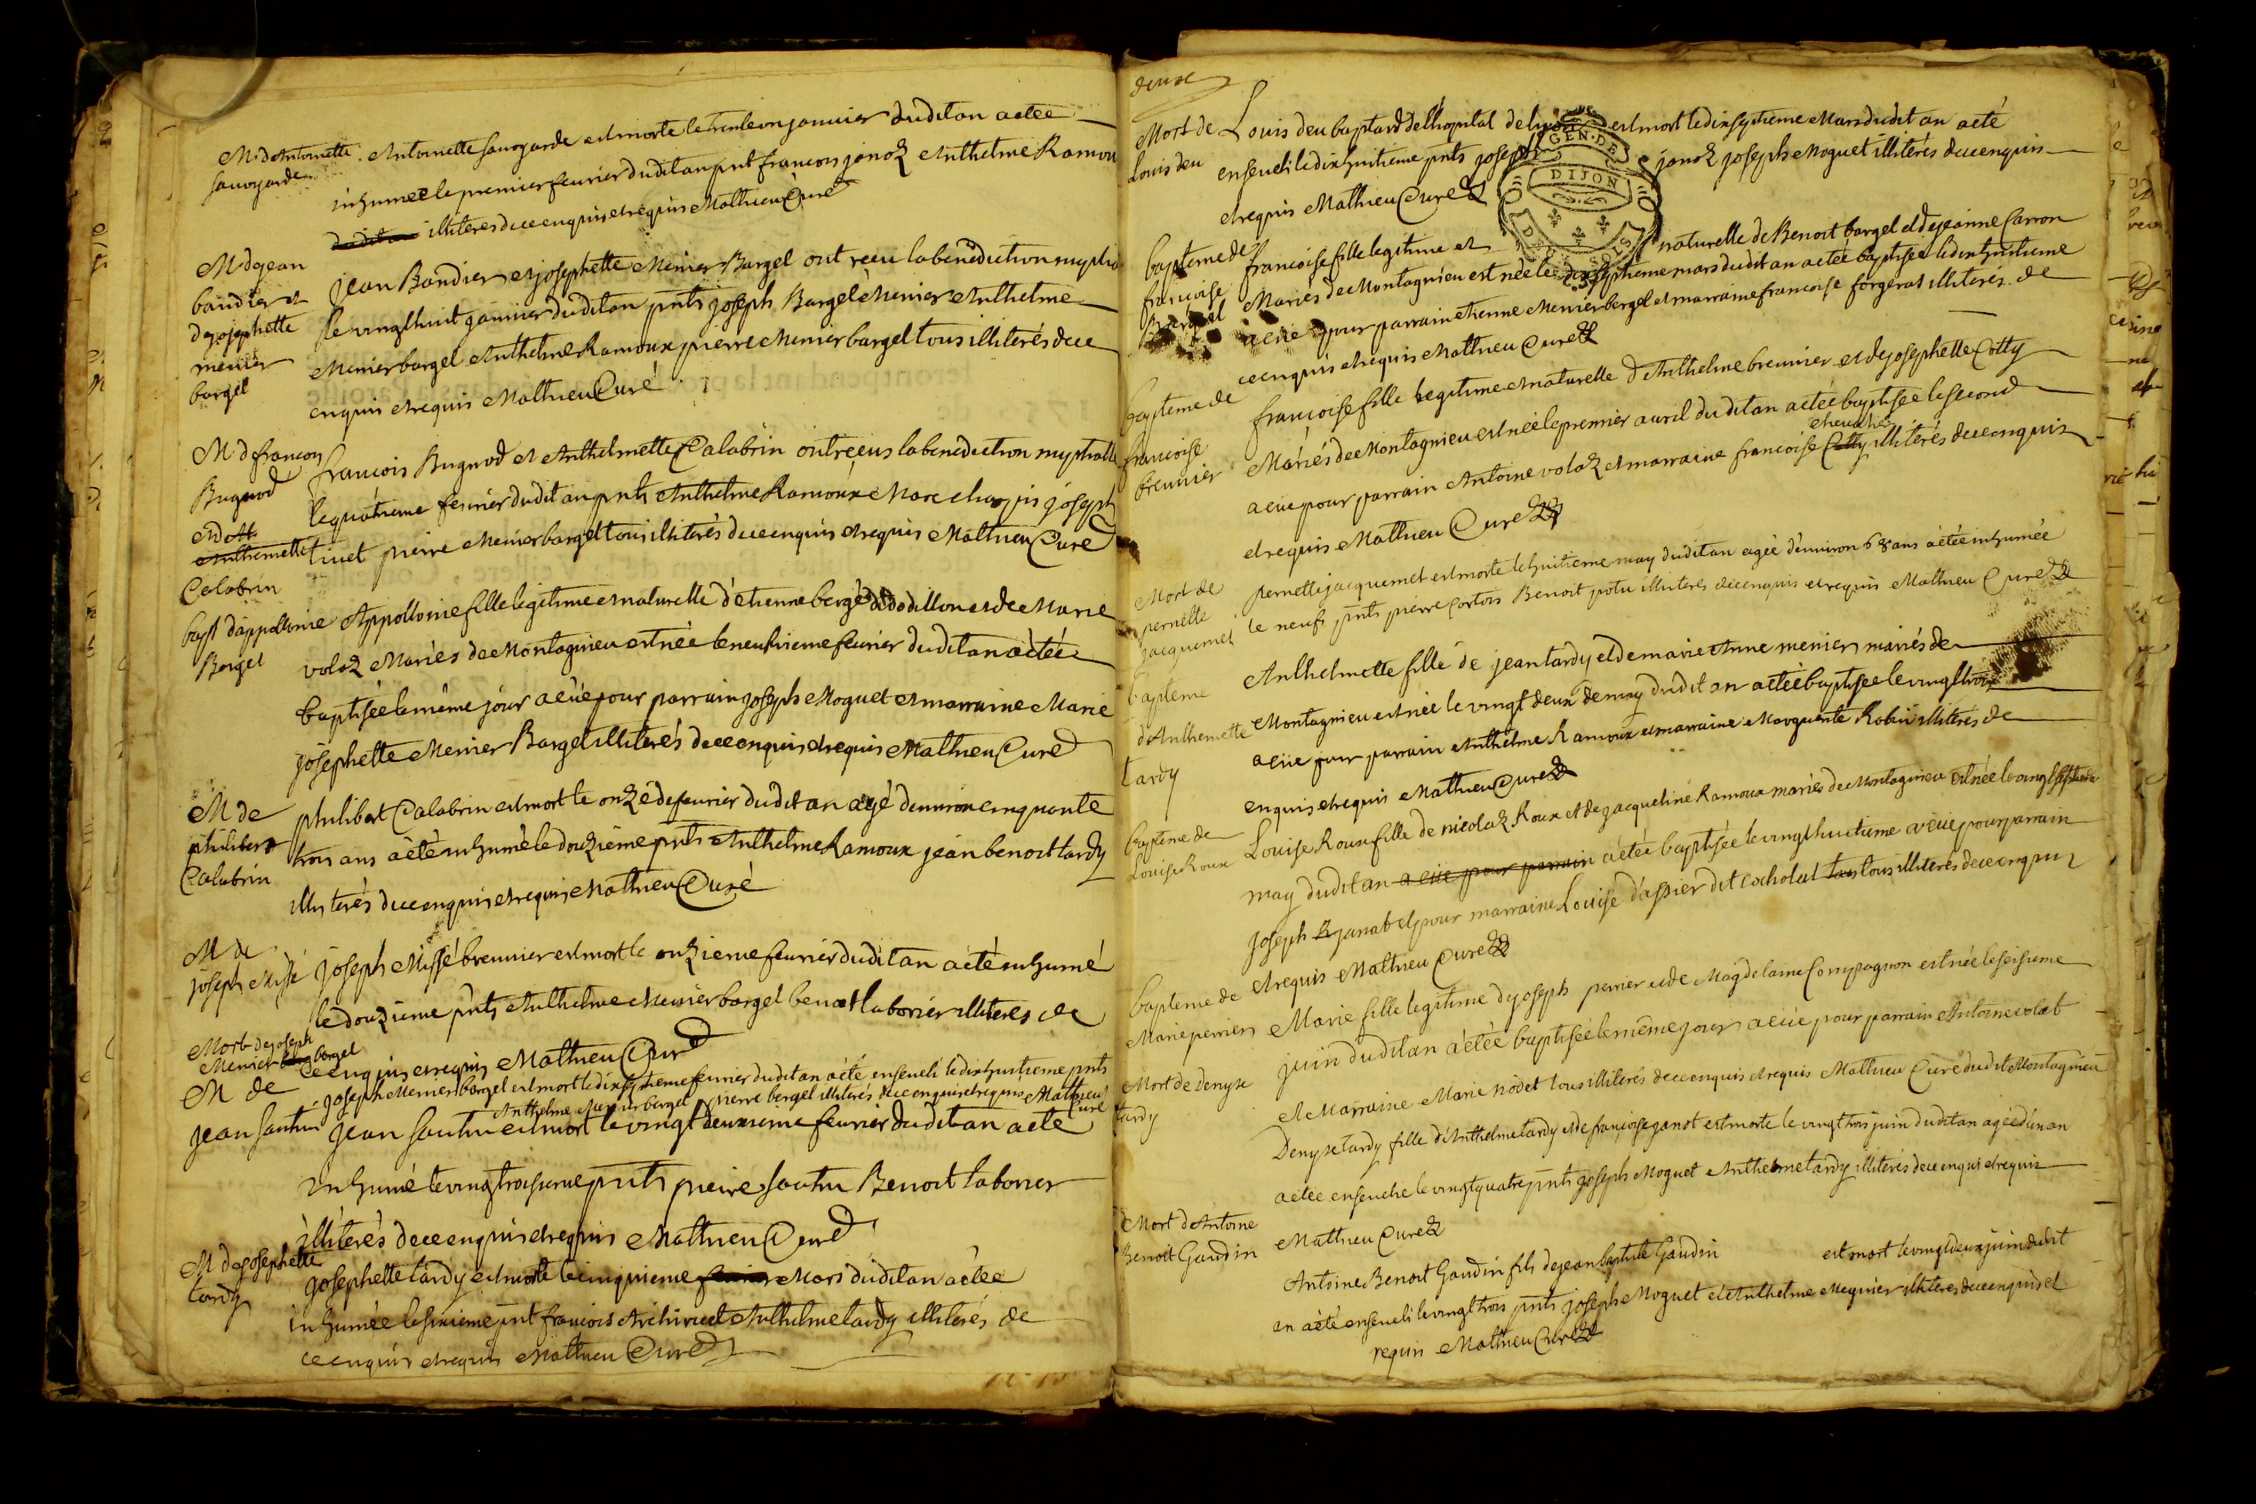 M. d'Antoinette
sauvoyarde
Antoinette sauvoyarde est morte le trente un janvier dudit an a etée
inhumée le premier fevrier dudit an pnt francois janoz Anthelme Ramou
illiterés de ce enquis et requis Mathieu Curé
M de jean
baudier et
de josephette
menier
bargel
jean Baudier et josephette Menier Bargel ont receu la benediction nuptia
le vingt huit janvier dudit an pnts joseph Bargel Menier Anthelme
Menier bargel Anthelme Ramoux pierre Menier bargel tous illiterés de ce
enquis et requis Mathieu Curé
M d francois
Bugnod
et d A
Anthemette
Calabrin
francois Bugnod et Anthelmette Calabrin ont receus la benediction nuptialle
le quatrieme fevrier dudit an pnts Anthelme Ramoux Marc joseph
tinet pierre Menier bargel tous illiterés de ce enquis et requis Mathieu Curé
bapt d'appollonie
Bargel
Appollonie fille legitime et naturelle d'etienne bargé et de Marie
volaz Mariés de Montagnieu est née le neufvieme fevrier dudit an a étée
baptisée le même jour a eüe pour parrain joseph Moguet et marraine Marie
josephette Menier Bargel illiterés de ce enquis et requis Mathieu Curé
M de
philibert
Calabrin
philibert Calabrin est mort le onze de fevrier dudit an agé d'environ cinquante
trois ans a été inhumé le douzieme pnts Anthelme Ramoux jean benoit tardy
illiterés de ce enquis et requis Mathieu Curé
M de
joseph Missé
joseph Missé breunier est mort le onzieme fevrier dudit an a été inhumé
le douzieme pnts Anthelme Menier bargel benoit laborier illiteres de
ce enquis et requis Mathieu Curé
Mort de joseph
Menier bargel
joseph Menier bargel est mort le dix septieme fevrier dudit an a été enseveli le dix huitieme pnts
Anthelme Menier bargel pierre bargel illiterés de ce enquis et requis Mathieu
Curé
M de
jean santu
jean santu est mort le vingt deuxieme fevrier dudit an a été
inhumé le vingt troisieme pnts pierre santu Benoit laborier
illiterés de ce enquis et requis Mathieu Curé
M de josephette
tardy
josephette tardy est morte le cinquieme Mars dudit an a étée
inhumée le sixieme pnt francois Anthelme tardy illiterés de
ce enquis et requis Mathieu Curé
deuxe
Mort de
Louis deu
Louis deu baptard de l'hopital de est mort le dix septieme Mars dudit an a eté
enseveli le dix huitieme pnts joseph janoz joseph Moguet illiterés de ce enquis
et requis Mathieu Curé
GEN. DE
DIJON
bapteme de
francoise
Bargel
francoise fille legitime et naturelle de Benoit bargel et de jeanne Carron
Mariés de Montagnieu est née le dix septieme mars dudit an a étée baptisée le dix huitieme
a eüe pour parrain etienne Menier bargel et marraine francoise fargeret illiterés de
ce enquis et requis Mathieu Curé
bapteme de
francoise
breunier
francoise fille legitime et naturelle d'Anthelme breunier et de josephette Cotty
Mariés de Montagnieu est née le premier avril dudit an a étée baptisée le second
a eüe pour parrain Antoine volaz et marraine francoise Cotty illiterés de ce enquis
et requis Mathieu Curé
Mort de
pernette
jacquemet
pernette jacquemet est morte le huitieme may dudit an agée d'environ 68 ans a étée inhumée
le neuf pnts pierre Benoit illiterés de ce enquis et requis Mathieu Curé
bapteme
d'Anthemette
tardy
Anthelmette fille de jean tardy et de marie Anne menier mariés de
Montagnieu est née le vingt deux de may dudit an a étée baptisée le vingt trois
a eüe pour parrain Anthelme Ramoux et marraine Marguerite Robin illiterés de
enquis et requis Mathieu Curé
bapteme de
Louise Roux
Louise Roux fille de nicolaz Roux et de jacqueline Ramoux mariés de Montagnieu est née le vingt
may dudit an a eüe pour parrain a étée baptisée le vingt huitieme a eüe pour parrain
joseph janat et pour marraine Louise d'assier dit tous illiterés de ce enquis
et requis Mathieu Curé
bapteme de
Marie perrier
Marie fille legitime de joseph perrier et de Magdelaine Compagnon est née le seisieme
juin dudit an a étée baptisée le même jour a eüe pour parrain Antoine volat
et Marraine Marie nodet tous illiterés de ce enquis et requis Mathieu Curé dudit Montagnieu
Mort de Denyse
tardy
Denyse tardy fille d'Anthelme tardy et de francoise janot est morte le vingt trois juin dudit an agée d'un an
a étée ensevelie le vingt quatre pnts joseph Moguet Anthelme tardy illiterés de ce enquis et requis
Mathieu Curé
Mort d'Antoine
Benoit Gaudin
Antoine Benoit Gaudin fils de jean baptiste Gaudin est mort le vingt deux juin dudit
an a été enseveli le vingt trois pnts joseph Moguet et Anthelme illiterés de ce enquis et
requis Mathieu Curé